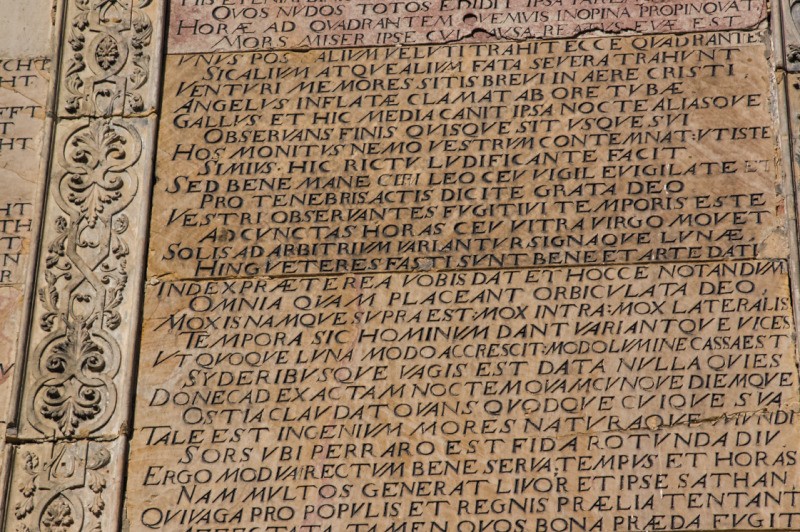 QVOS NVDOS TOTOS EDIDIT IPSA
HORÆ AD QVADRANTEM QVEMVIS INOPINA PROPINQVAT
MORS MISER IPSE EST
VNVS POST ALIVM VELVTI TRAHIT ECCE QVADRANTEM
SIC ALIVM ATQVE ALIVM FATA SEVERA TRAHVNT
VENTVRI MEMORES SITIS BREVI IN AERE CRISTI
ANGELVS INFLATÆ CLAMAT AB ORE TVBÆ
GALLVS ET HIC MEDIA CANIT IPSA NOCTE ALIASQVE
OBSERVANS FINIS QVISQVE SIT VSQVE SVI
HOS MONITVS NEMO VESTRVM CONTEMNAT: VTISTE
SIMIVS HIC RICTV LVDIFICANTE FACIT
SED BENE MANE LEO CEV VIGIL EVIGILATE ET
PRO TENEBRIS ACTIS DICITE GRATA DEO
VESTRI OBSERVANTES FVGITIVI TEMPORIS ESTE
AD CVNCTAS HORAS CEV VITRA VIRGO MOVET
SOLIS AD ARBITRIVM VARIANTVR SIGNAQVE LVNÆ,
HINC VETERES FASTI SVNT BENE ET ARTE DATI
INDEX PRÆTEREA VOBIS DAT ET HOCCE NOTANDVM
OMNIA QVAM PLACEANT ORBICVLATA DEO
MOX IS NAMQVE SVPRA EST: MOX INTRA: MOX LATERALIS
TEMPORA SIC HOMINVM DANT VARIANTQVE VICES
VT QVOQVE LVNA MODO ACCRESCIT: MODO LVMINE CASSA EST
SYDERIBVSQVE VAGIS EST DATA NVLLA QVIES
DONEC AD EXACTAM NOCTEM QVAMCVNQVE DIEMQVE
OSTIA CLAVDAT OVANS QVODQVE CVIQVE SVA
TALE EST INGENIVM MORES NATVRAQVE MVNDI
SORS VBI PERRARO EST FIDA ROTVNDA DIV
ERGO MODVM RECTVM BENE SERVA TEMPVS ET HORAS
NAM MVLTOS GENERAT LIVOR ET IPSE SATHAN
QVI VAGA PRO POPVLIS ET REGNIS PRÆLIA TENTANT
TAMEN QVOS BONA PRÆDA FVGIT